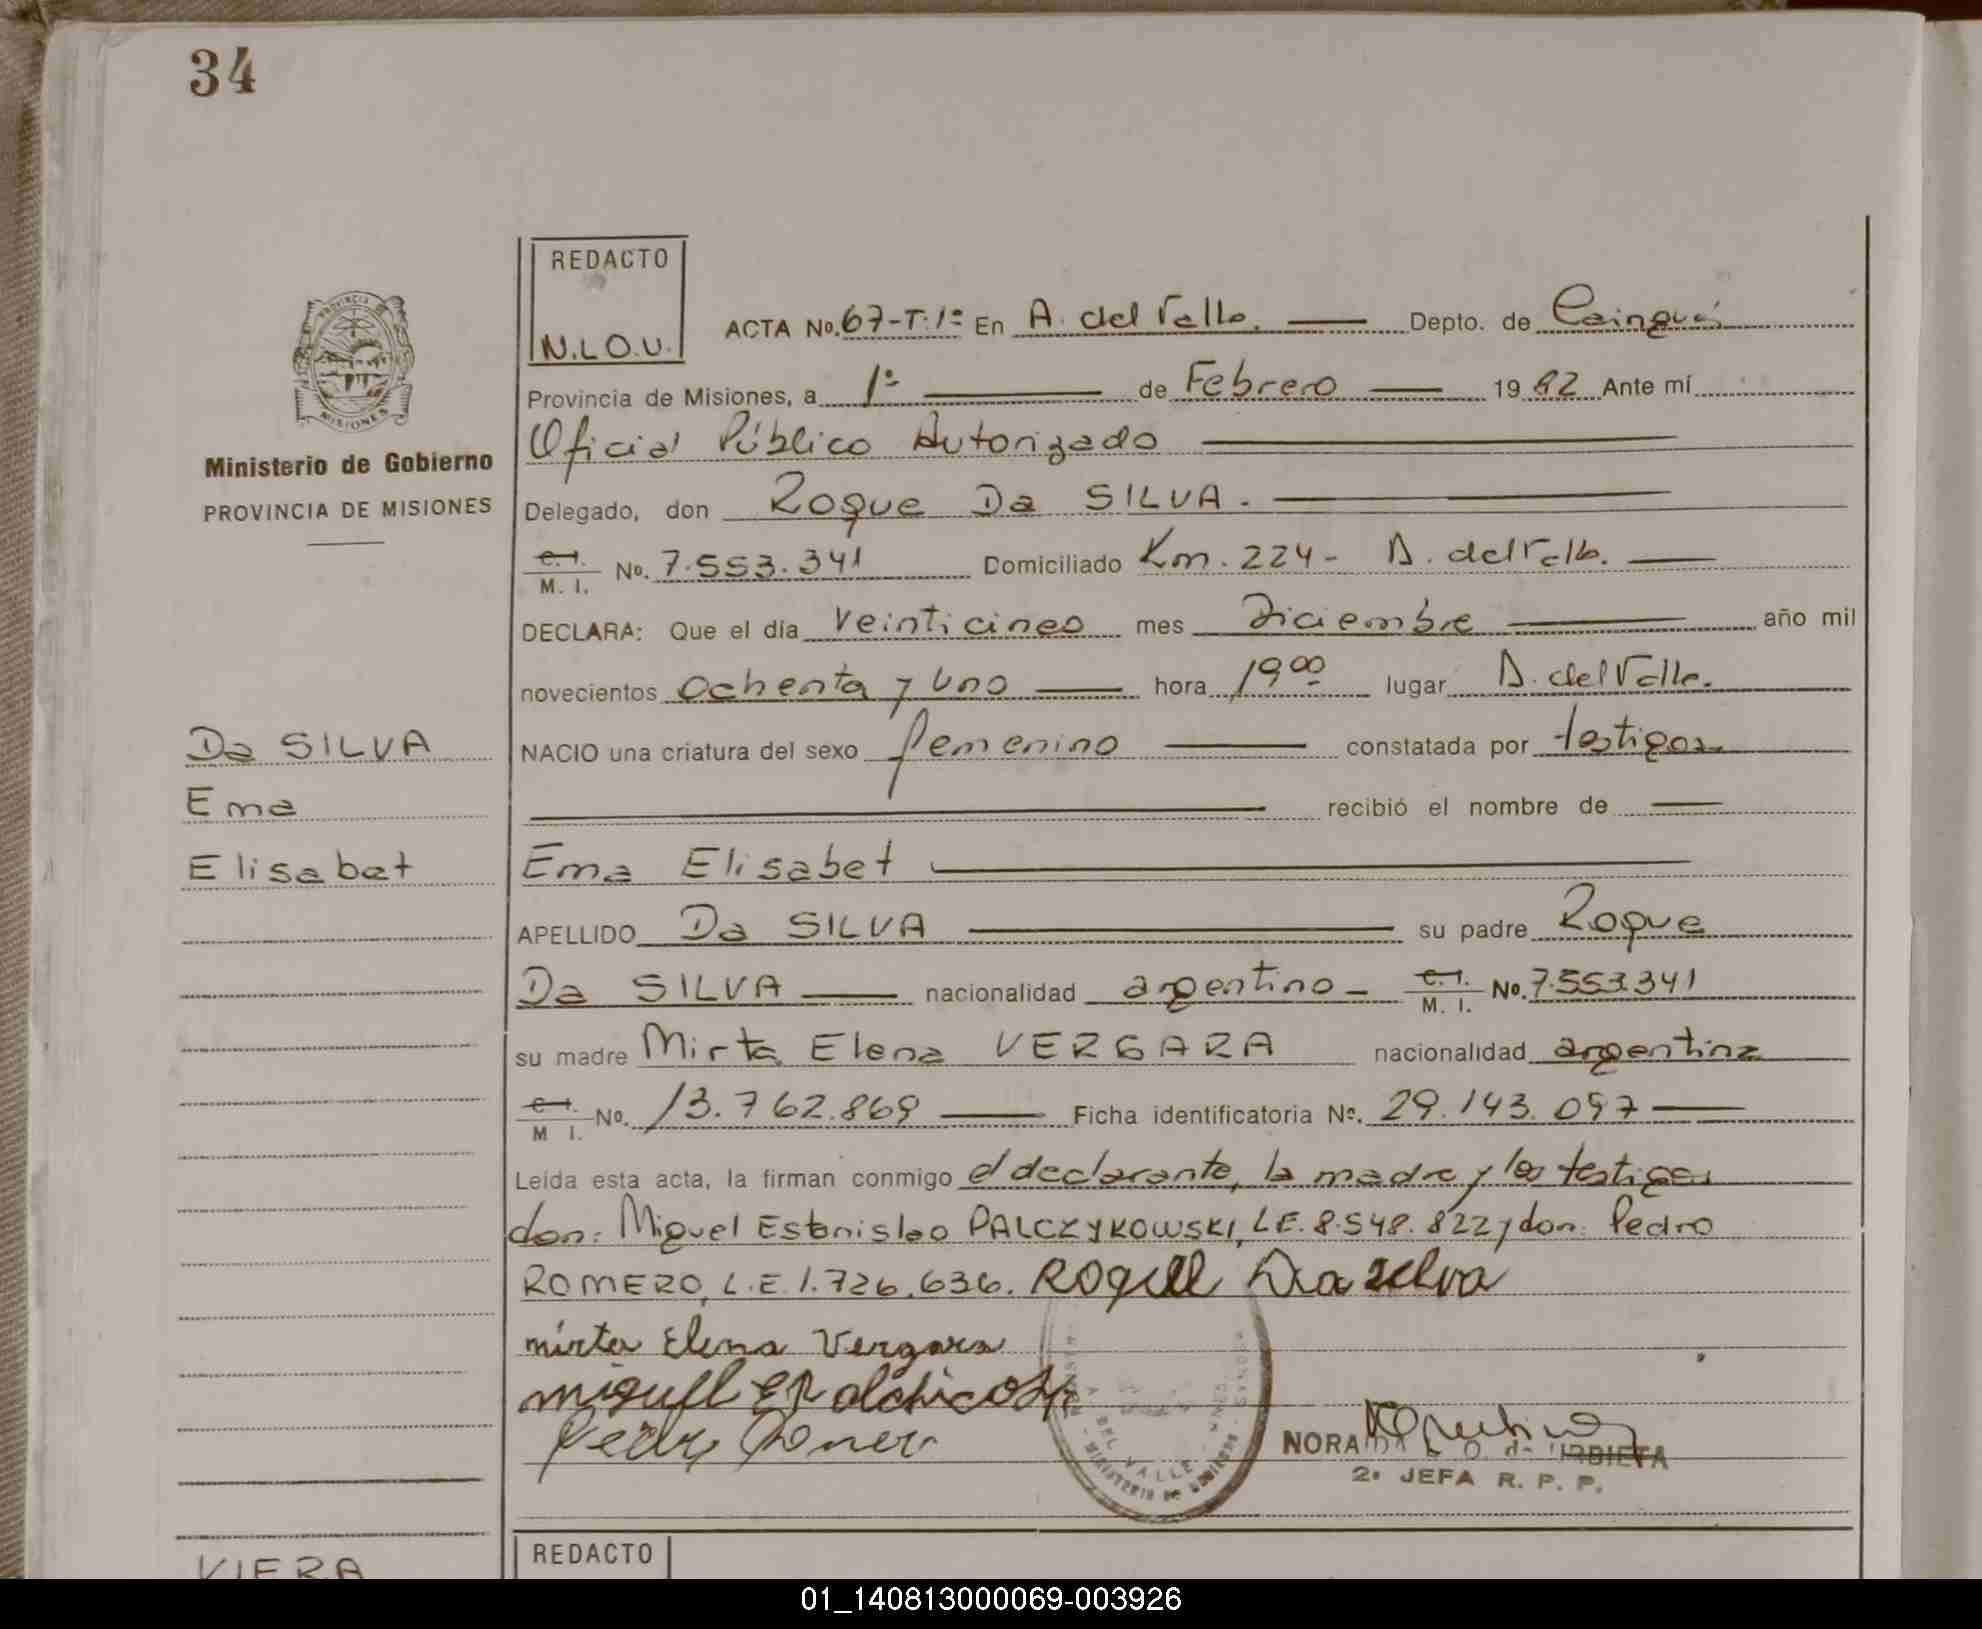 34
REDACTO
N.L.O.U.
PROVINCIA DE
MISIONES
Ministerio de Gobierno
PROVINCIA DE MISIONES
ACTA No. 67-T:1º En A. del Valle. Depto. de Cainguás
Provincia de Misiones, a 1º de Febrero 1982 Ante mí
Oficial Público Autorizado
Delegado, don Roque Da SILVA.
C. I. / M. I. No. 7.553.341 Domiciliado Km. 224- A. del Valle.
DECLARA: Que el día veinticinco mes Diciembre año mil
novecientos ochenta y uno hora 19 00 lugar A. del Valle.
Da SILVA
NACIO una criatura del sexo femenino constatada por testigos
Ema
recibió el nombre de
Elisabet
Ema Elisabet
APELLIDO Da SILVA su padre Roque
Da SILVA nacionalidad argentino - C. I. / M. I. No. 7.553.341
su madre Mirta Elena VERGARA nacionalidad argentina
C. I. / M I. No. 13.762.869 Ficha identificatoria Nº. 29.143.097
Leída esta acta, la firman conmigo el declarante, la madre y los testigos
don: Miguel Estanislao PALCZYKOWSKI, L.E. 8.548.822 y don: Pedro
ROMERO, L.E. 1.726.636. Roque Da silva
mirta Elena Vergara
miguel
Pedro Romero
DEL VALLE
NORA O. de URBIETA
2ª JEFA R. P. P.
REDACTO
VIERA
01_140813000069-003926